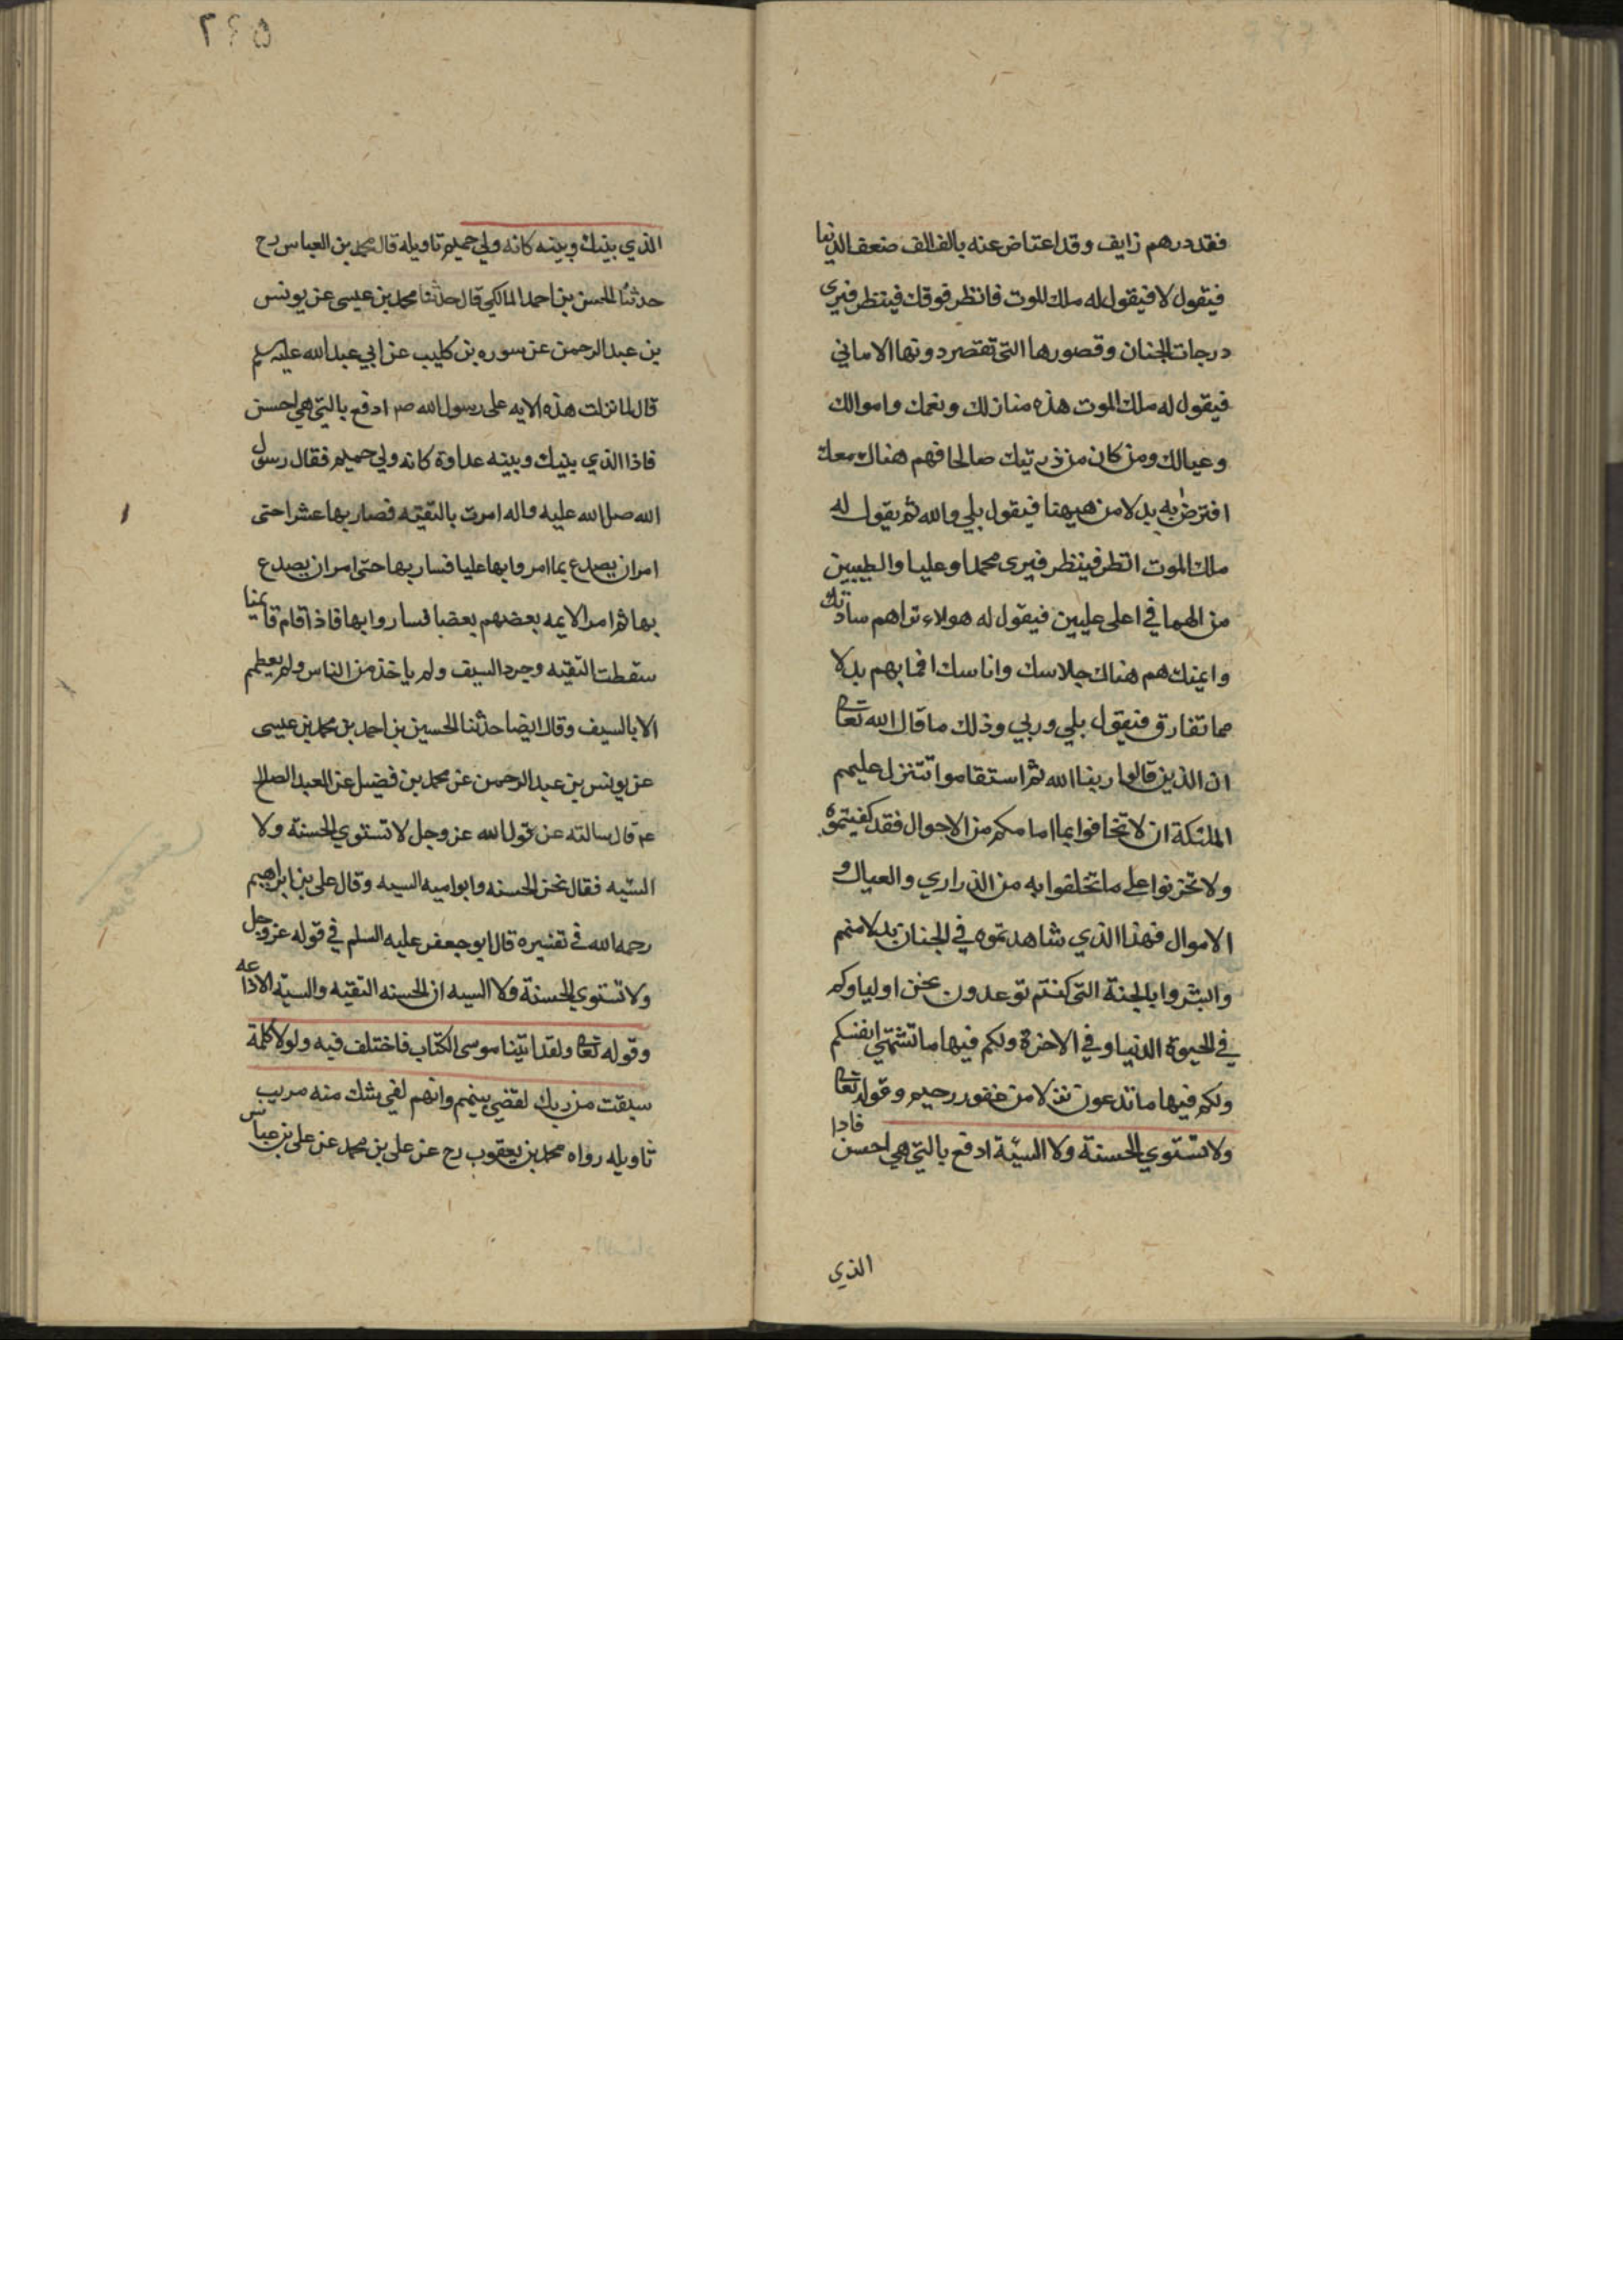 فقد درهم زايف وقد اعتاض عنه بالف الف ضعف الدنيا
فيقول لا فيقول له ملك الموت فانظر فوقك فينظر فيرى
درجات الجنان وقصورها التى تقصر دونها الاماني
فيقول له ملك الموت هذه منازلك ونعمك واموالك
وعيالك ومن كان من ذريتك صالحا فهم هناك معك
افترض به بدلا من هيهنا فيقول بلي والله ثم يقول له
ملك الموت انظر فينظر فيرى محمدا وعليا والطيبين
من الهما في اعلى عليين فيقول له هولاء تراهم ساداتك
وايمتك هم هناك جلاسك واناسك افما بهم بدلا
مما تفارق فيقول بلي وربي وذلك ما قال الله تعا
ان الذين قالوا ربنا الله ثم استقاموا تتنزل عليهم
الملئكة ان لا تخافوا بما امامكم من الاحوال فقد كفيتموه
ولا تحزنوا على ما تخلفوا به من الذراري والعيال و
الاموال فهذا الذي شاهدتموه في الجنان بدلا منهم
وابشروا بالجنة التى كنتم توعدون نحن اولياوكم
في الحيوة الدنيا وفي الاخرة ولكم فيها ما تشتهي انفسكم
ولكم فيها ما تدعون نزلا من غفور رحيم وقوله تعا
ولا تستوي الحسنة ولا السيّة ادفع بالتي هي احسن فاذا
الذي
٢٤٥
الذي بينك وبينه كانه ولي حميم تاويله قال محمد بن العباس رح
حدثنا الحسن بن احمد المالكي قال حدثنا محمد بن عيسى عن يونس
بن عبد الرحمن عن سوره بن كليب عن ابي عبد الله عليه سلم
قال لما نزلت هذه الايه على رسول الله صم ادفع بالتي هي احسن
فاذا الذي بينك وبينه عداوة كانه ولي حميم فقال رسول
الله صلى الله عليه واله امرت بالتقيه فصار بها عشرا حتى
امر ان يصدع بما امر وابها عليا فسار بها حتى امر ان يصدع
بها ثم امر الايمه بعضهم بعضا فساروا بها فاذا قام قايمنا
سقطت التقيه وجرد السيف ولم ياخذ من الناس ولم يعطهم
الا بالسيف وقال ايضا حدثنا الحسين بن احمد بن محمد بن عيسى
عن يونس بن عبد الرحمن عن محمد بن فضيل عن العبد الصالح
عم قال سالته عن قول الله عز وجل لا تستوي الحسنة ولا
السّيه فقال نحن الحسنه وابوا ميه السيه وقال على بن ابراهيم
رحمه الله في تفسيره قال ابو جعفر عليه السلم في قوله عز وجل
ولا تستوي الحسنة ولا السيه ان الحسنه التقيه والسيّة الاذاعه
وقوله تعا ولقد اتينا موسى الكتاب فاختلف فيه ولولا كلمة
سبقت من ربك لقضى بينهم وانهم لفي شك منه مريب
تاويله رواه محمد بن يعقوب رح عن على بن محمد عن على بن عباس